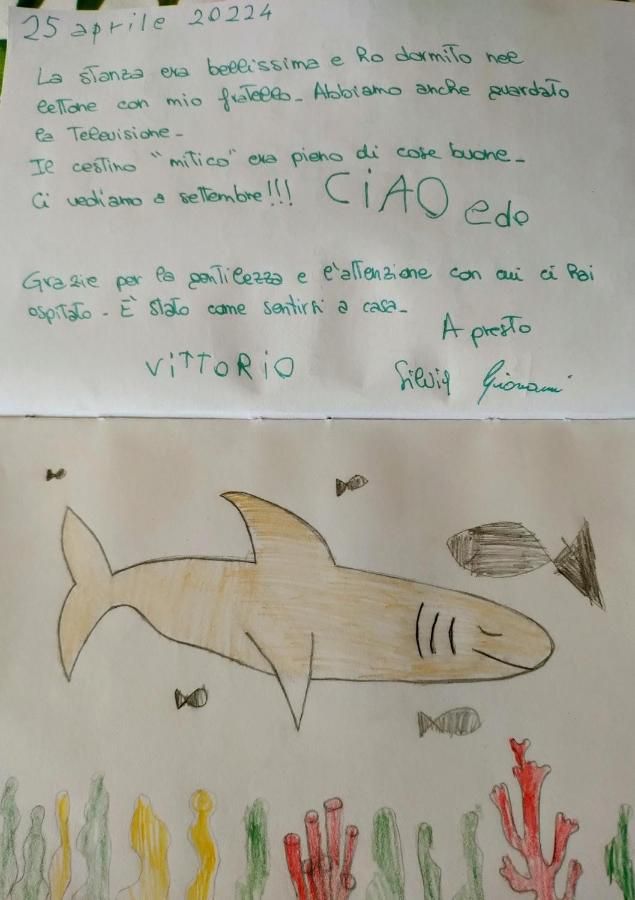 25 aprile 20224
La stanza era bellissima e ho dormito nel
lettone con mio fratello. Abbiamo anche guardato
la Televisione.
Il cestino "mitico" era pieno di cose buone.
Ci vediamo a settembre!!! CIAO edo
Grazie per la gentilezza e l'attenzione con cui ci hai
ospitato. È stato come sentirsi a casa.
A presto
ViTTORiO Silvia Giovanni